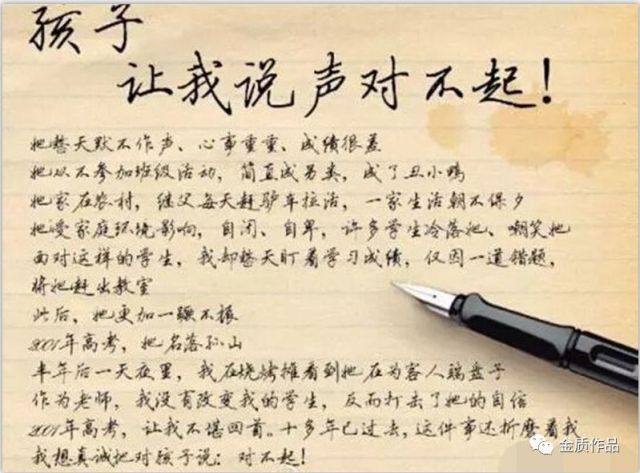 孩子
让我说声对不起!
她整天默不作声、心事重重、成绩很差
她从不参加班级活动,简直成另类,成了丑小鸭
她家在农村,继父每天赶驴车拉活,一家生活朝不保夕
她受家庭环境影响,自闭、自卑,许多学生冷落她、嘲笑她
面对这样的学生,我却整天盯着学习成绩,仅因一道错题,
将她赶出教室
此后,她更加一蹶不振
2001年高考,她名落孙山
半年后一天夜里,我在烧烤摊看到她在为客人端盘子
作为老师,我没有改变我的学生,反而打击了她的自信
2001年高考,让我不堪回首。十多年已过去,这件事还折磨着我
我想真诚地对孩子说:对不起!
金质作品